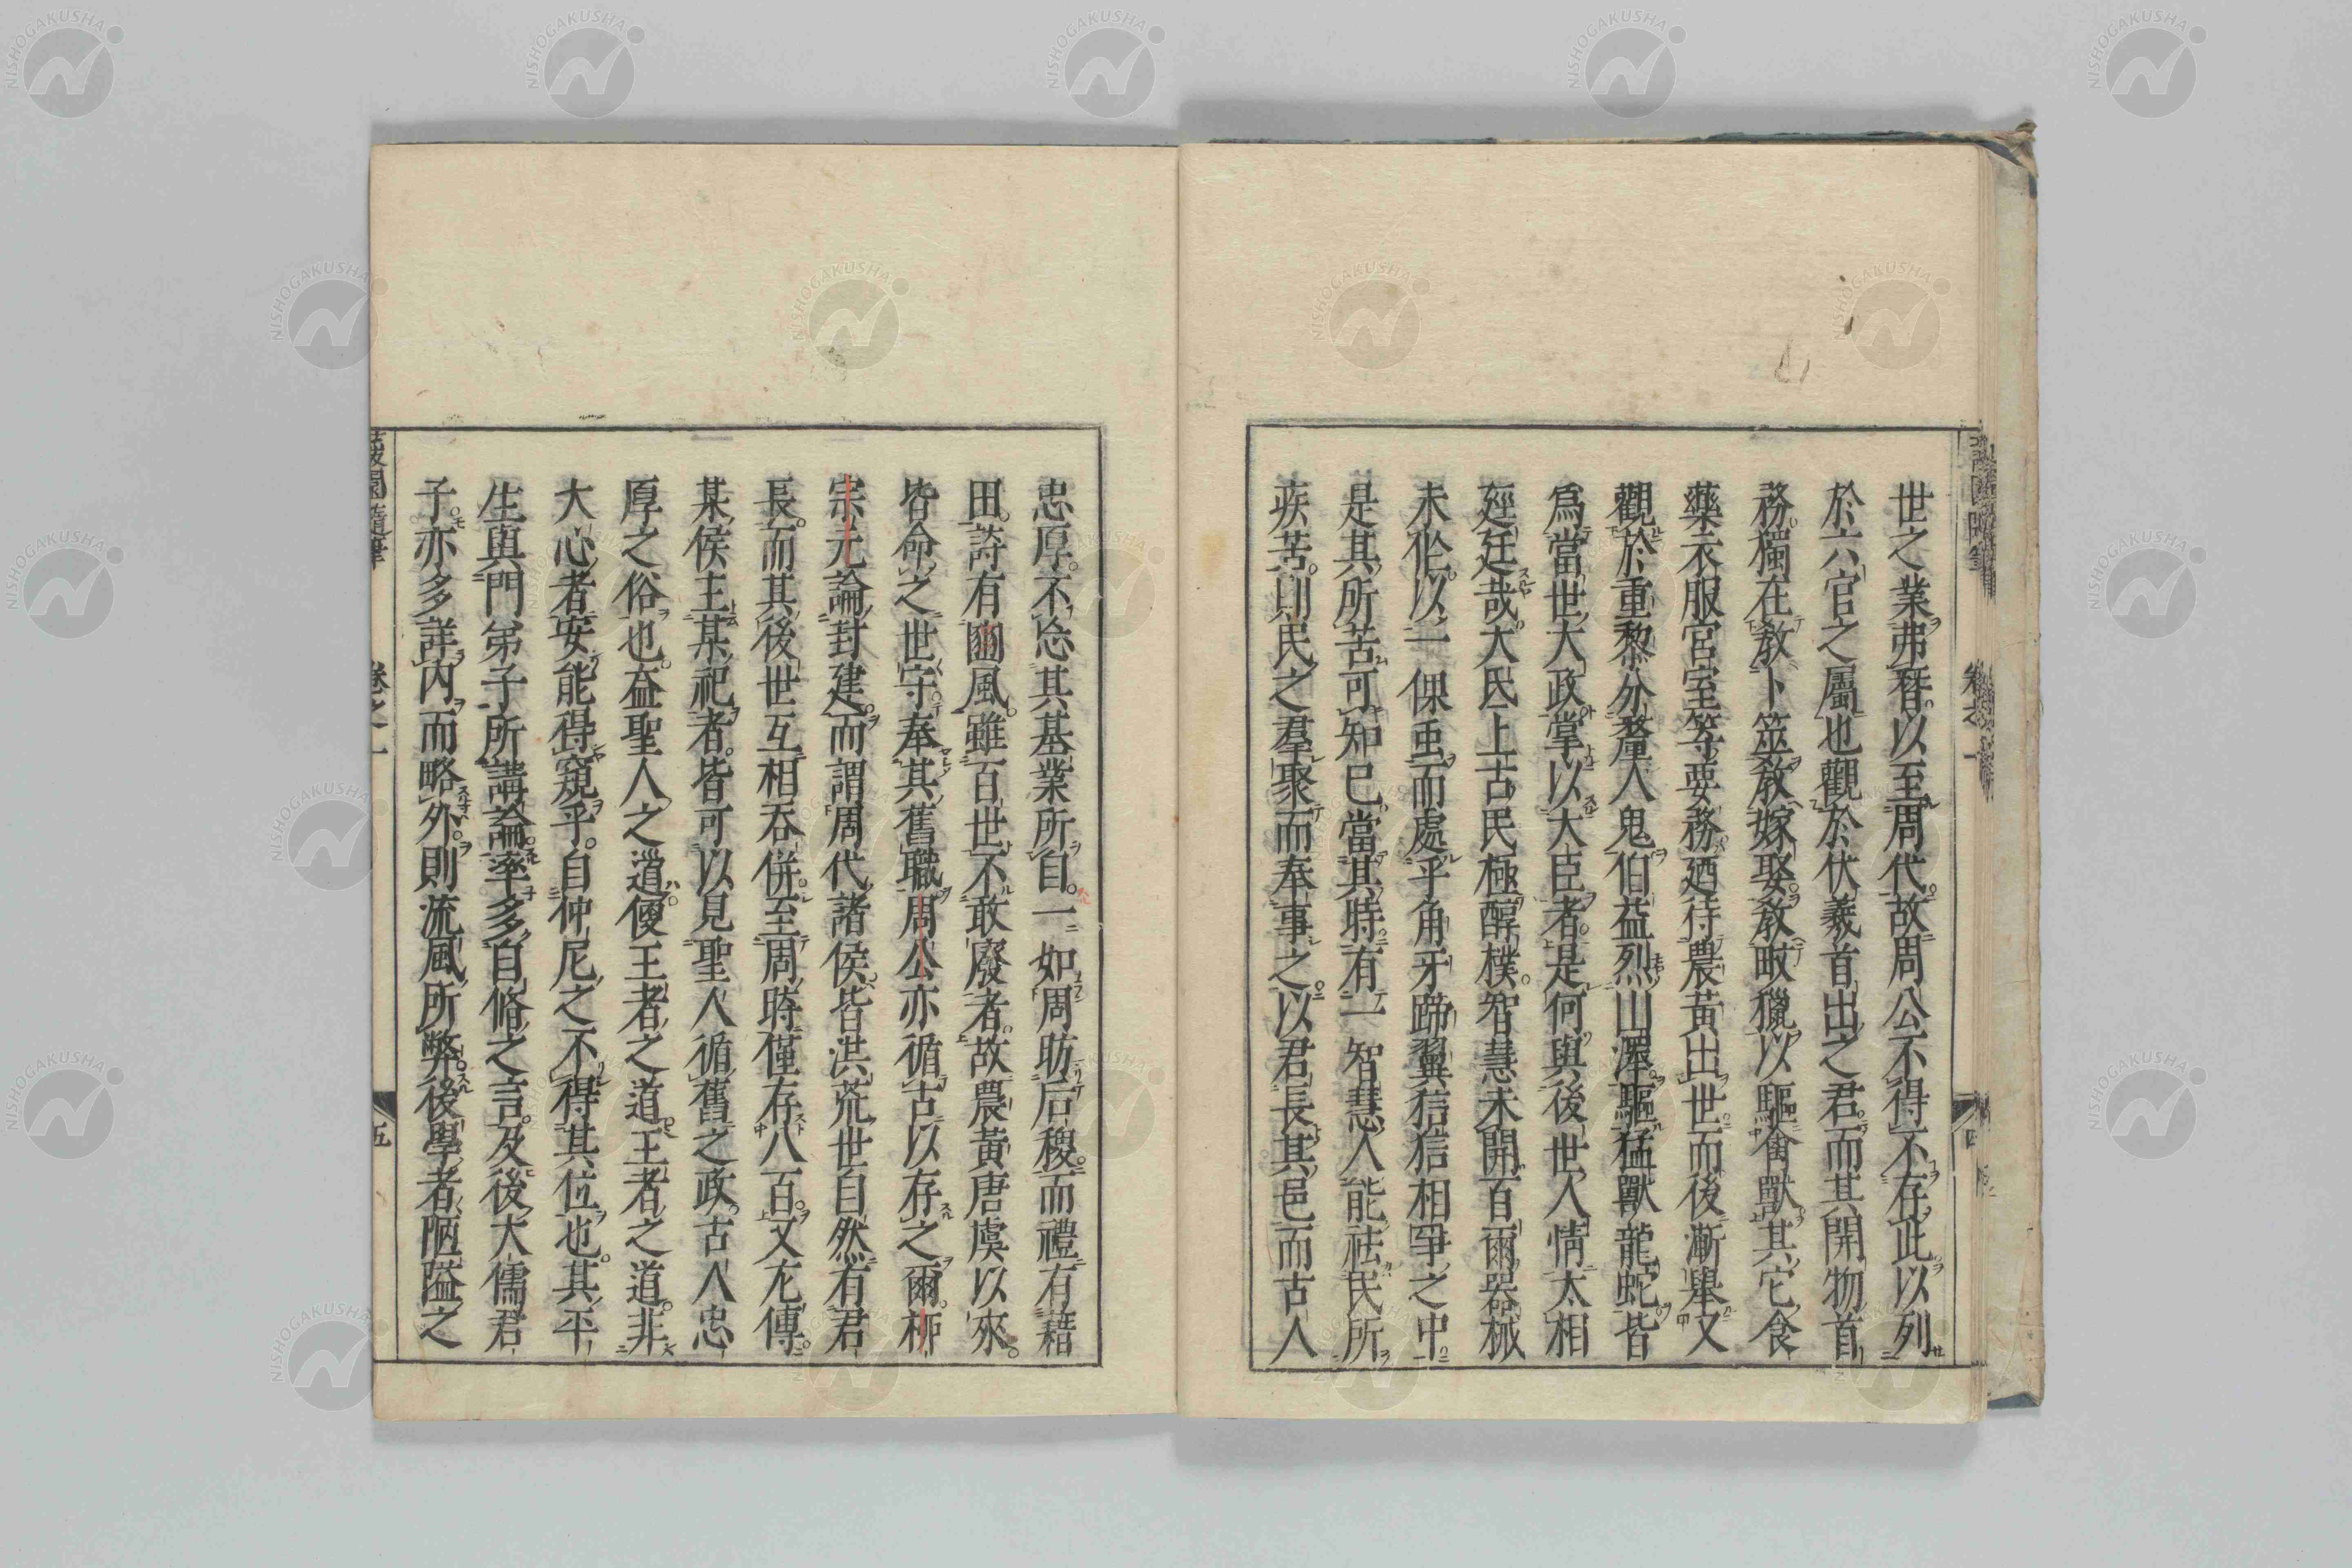 世之業弗替以至周代故周公不得不存此以列
於六官之屬也觀於伏羲首出之君而其開物首
務獨在教卜筮教嫁娶教畋獵以驅禽獸其它食
藥衣服宮室等要務廼待農黃出世而後漸舉又
觀於重黎分釐人鬼伯益烈山澤驅猛獸龍蛇皆
爲當世大政掌以大臣者是何與後世人情太相
逕廷哉大氐上古民極醇樸智慧未開百爾器械
未化以一倮虫而處乎角牙蹄翼狺狺相爭之中
是其所苦可知已當其時有一智慧人能祛民所
疾苦則民之羣聚而奉事之以君長其邑而古人
忠厚不忘其基業所自一如周昉后稷而禮有藉
田詩有豳風雖百世不敢廢者故農黃唐虞以來
皆命之世守奉其舊職周公亦循古以存之爾柳
宗元論封建而謂周代諸侯皆洪荒世自然有君
長而其後世互相吞併至周時僅存八百又尢傳
某侯主某祀者皆可以見聖人循舊之政古人忠
厚之俗也益聖人之道便王者之道王者之道非
大心者安能得窺乎自仲尼之不得其位也其平
生與門弟子所講論率多自脩之言及後大儒君
子亦多詳內而略外則流風所弊後學者陋隘之
蘐園隨筆 卷之一 五
卷之一 四
NISHOGAKUSHA